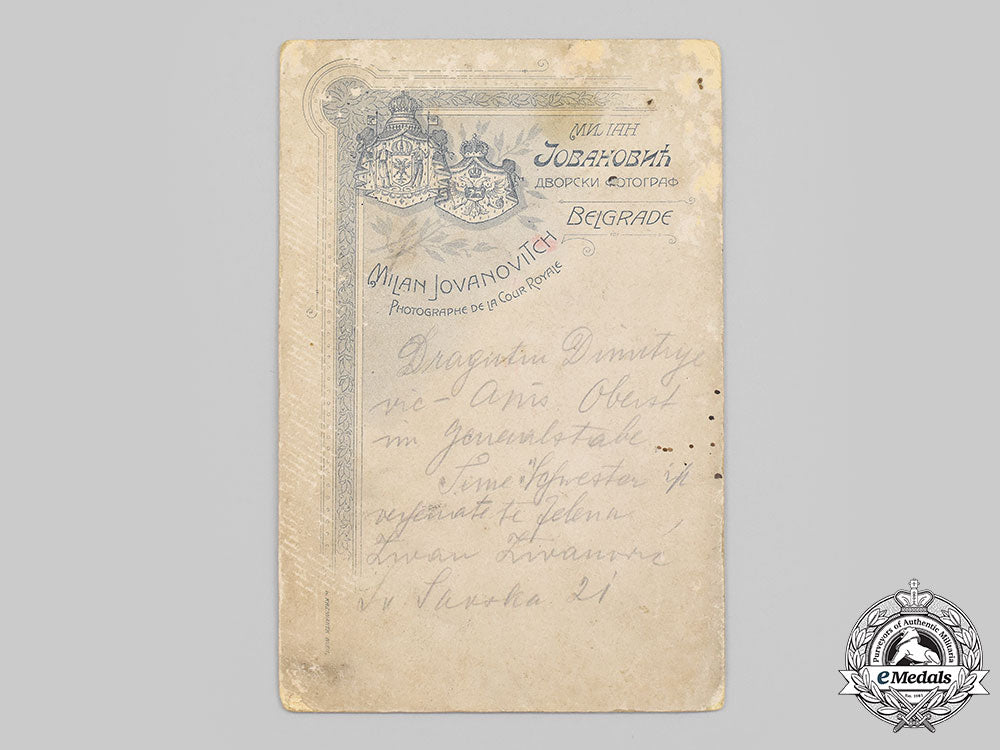 МИЛАН
ЈОВАНОВИЋ
ДВОРСКИ ФОТОГРАФ
BELGRADE
MILAN JOVANOVITCH
PHOTOGRAPHE DE LA COUR ROYALE
Dragutin Dimitrije
vic - Apis Oberst
im Generalstabe
Seine Schwester ist
verheiratete Jelena
Živan Živanović
Sv Savska 21
Purveyors of Authentic Militaria
eMedals